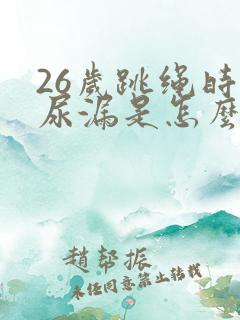 26歲跳绳時
尿漏是怎麼
趙帮振
未任同意禁止转载